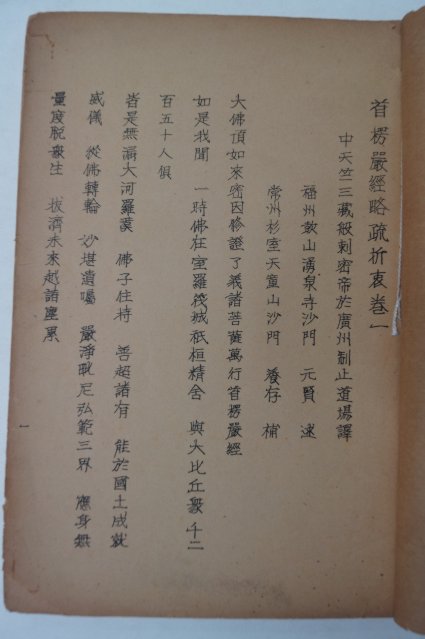 首楞嚴經略疏析衷卷一
中天竺三藏般剌密帝於廣州制止道場譯
福州鼓山湧泉寺沙門　元賢　述
常州杉室天童山沙門　養存　補
大佛頂如來密因修證了義諸菩薩萬行首楞嚴經
如是我聞　一時佛在室羅筏城祇桓精舍　與大比丘衆　千二
百五十人俱
皆是無漏大阿羅漢　佛子住持　善超諸有　能於國土成就
威儀　從佛轉輪　妙堪遺囑　嚴淨毗尼弘範三界　應身無
量度脫衆生　拔濟未來越諸塵累
一